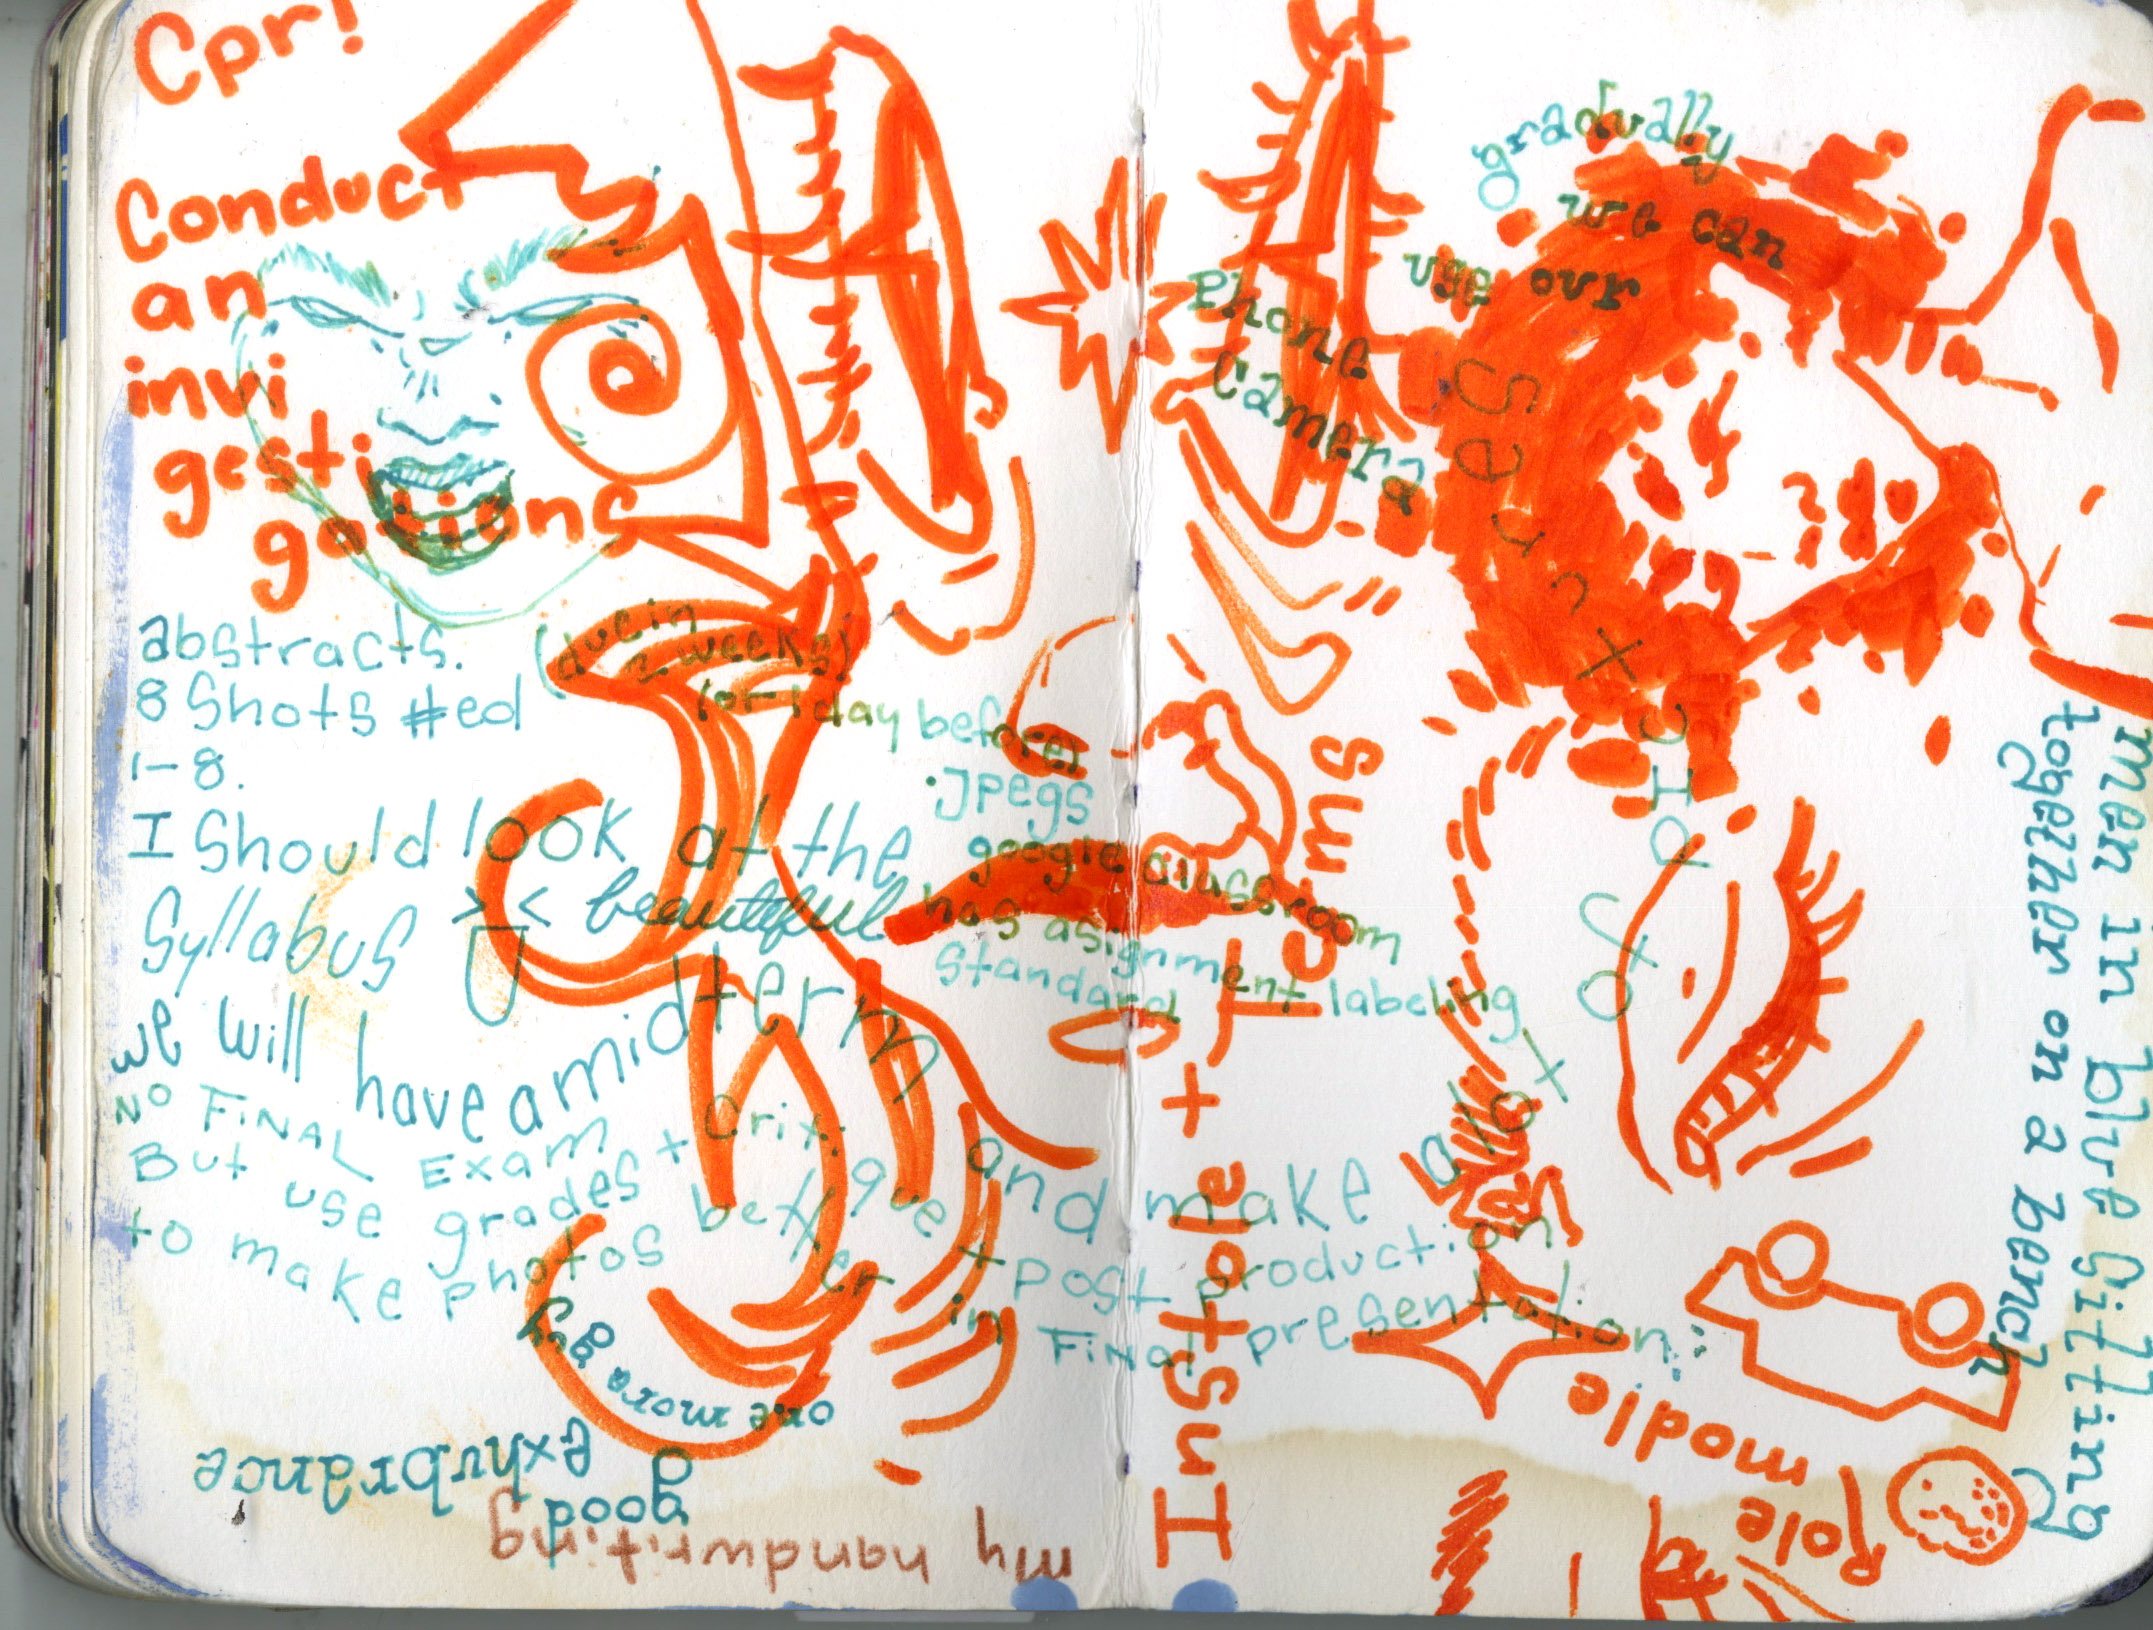 Cpr!
Conduct
an
invi
gesti
gations
abstracts.
8 Shots #ed
1-8.
(due in
2 weeks)
(or 1 day before)
.Jpegs
google classroom
has asignment labeling
standard
I Should look at the
Syllabus >< beautiful
we will have a midterm
NO FINAL EXAM
But use grades + Crix. que and make alot of pictures
to make photos better + post production
in Final presentation:
gradually
we can
use our
Phone
Camera
Instole + I
Tems
men in blue sitting
together on a bench
Role modle
one more guy
good
exhubrance
my handwriting